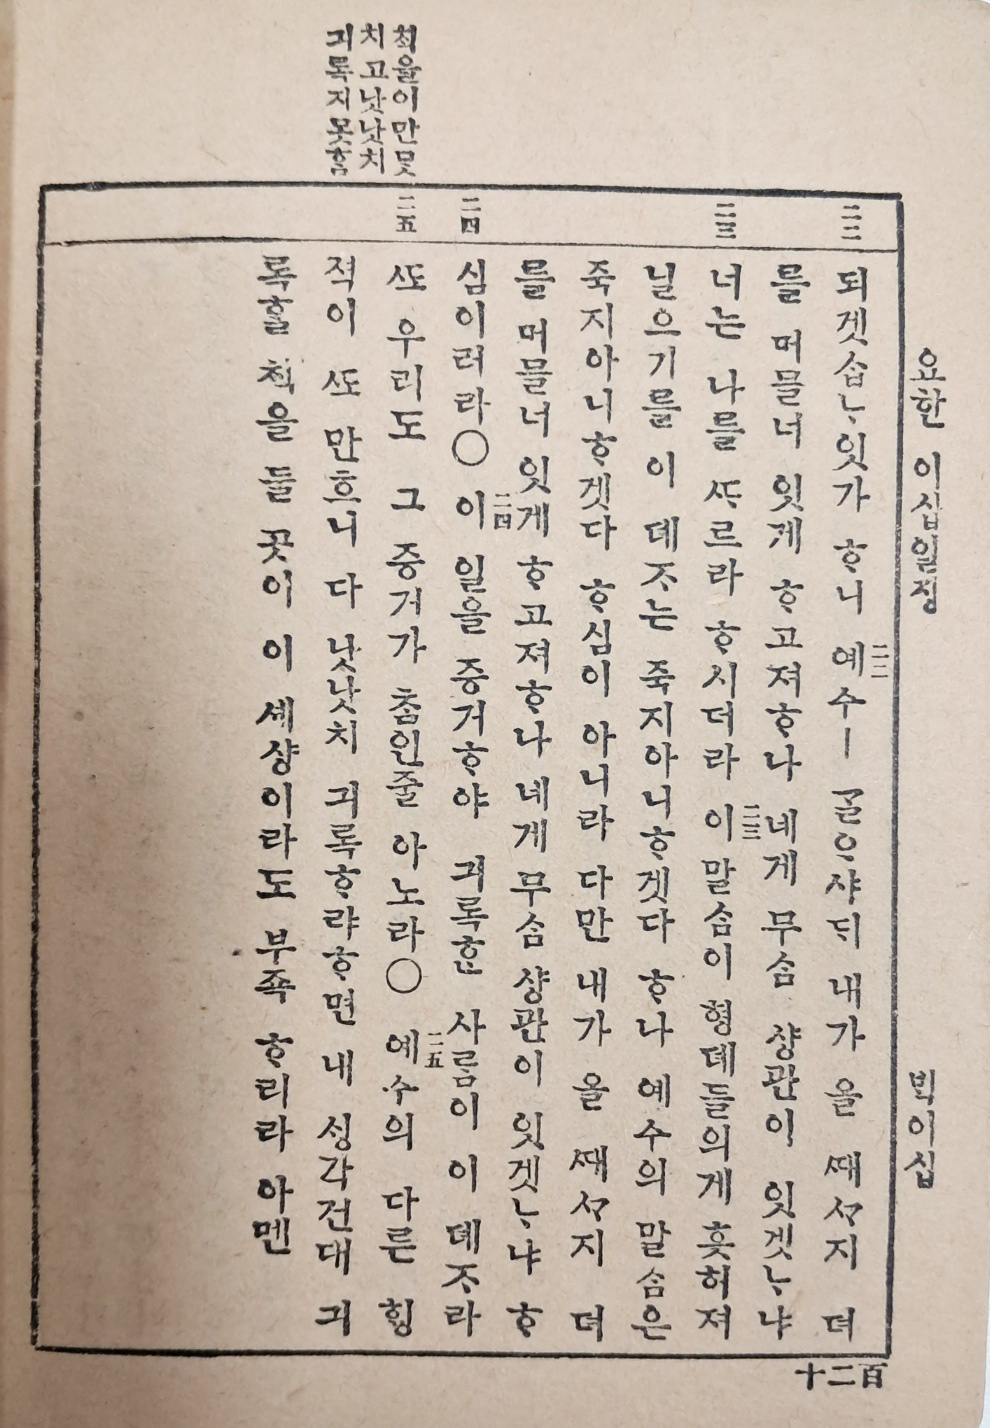 요한 이십일쟝
ᄇᆡᆨ이십
二二
二三
二四
二五
되겟ᄉᆞᆸᄂᆞ잇가 ᄒᆞ니 예수ㅣ ᄀᆞᆯᄋᆞ샤ᄃᆡ 내가 올 ᄯᅢᄭᆞ지 뎌
를 머믈너 잇게 ᄒᆞ고져ᄒᆞ나 네게 무ᄉᆞᆷ 샹관이 잇겟ᄂᆞ냐
너는 나를 ᄯᆞ르라 ᄒᆞ시더라 이 말ᄉᆞᆷ이 형뎨들의게 흣허져
닐ᄋᆞ기를 이 뎨ᄌᆞ는 죽지아니ᄒᆞ겟다 ᄒᆞ나 예수의 말ᄉᆞᆷ은
죽지아니ᄒᆞ겟다 ᄒᆞ심이 아니라 다만 내가 올 ᄯᅢᄭᆞ지 뎌
를 머믈너 잇게 ᄒᆞ고져ᄒᆞ나 네게 무ᄉᆞᆷ 샹관이 잇겟ᄂᆞ냐 ᄒᆞ
심이러라○ 이 일을 증거ᄒᆞ야 긔록ᄒᆞᆫ 사ᄅᆞᆷ이 이 뎨ᄌᆞ라
ᄯᅩ 우리도 그 증거가 ᄎᆞᆷ인줄 아노라○ 예수의 다른 ᄒᆡᆼ
젹이 ᄯᅩ 만흐니 다 낫낫치 긔록ᄒᆞ랴ᄒᆞ면 내 ᄉᆡᆼ각건대 긔
록ᄒᆞᆯ ᄎᆡᆨ을 둘 곳이 이 셰샹이라도 부죡 ᄒᆞ리라 아멘
二二
二三
二四
二五
ᄎᆡᆨ을이만못
치고낫낫치
긔록지못ᄒᆞᆷ
百二十